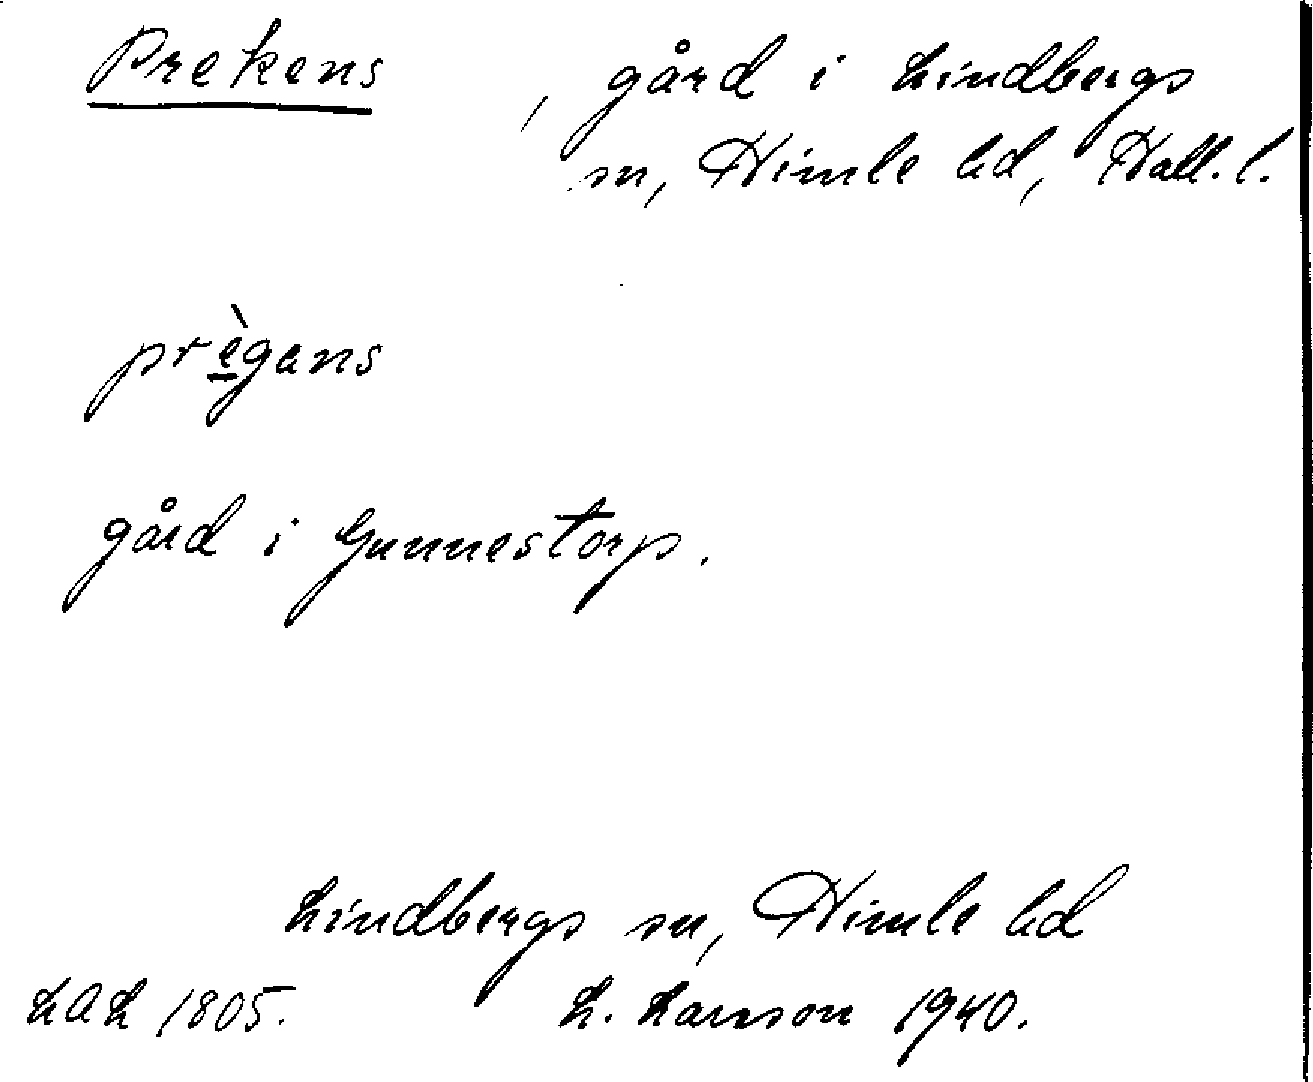 Prekens , gård i Lindbergs
sn, Himle hd, Hall. l.
prègens
gård i Gunnestorp.
Lindbergs sn, Himle hd
LAL 1805. L. Larsson 1940.